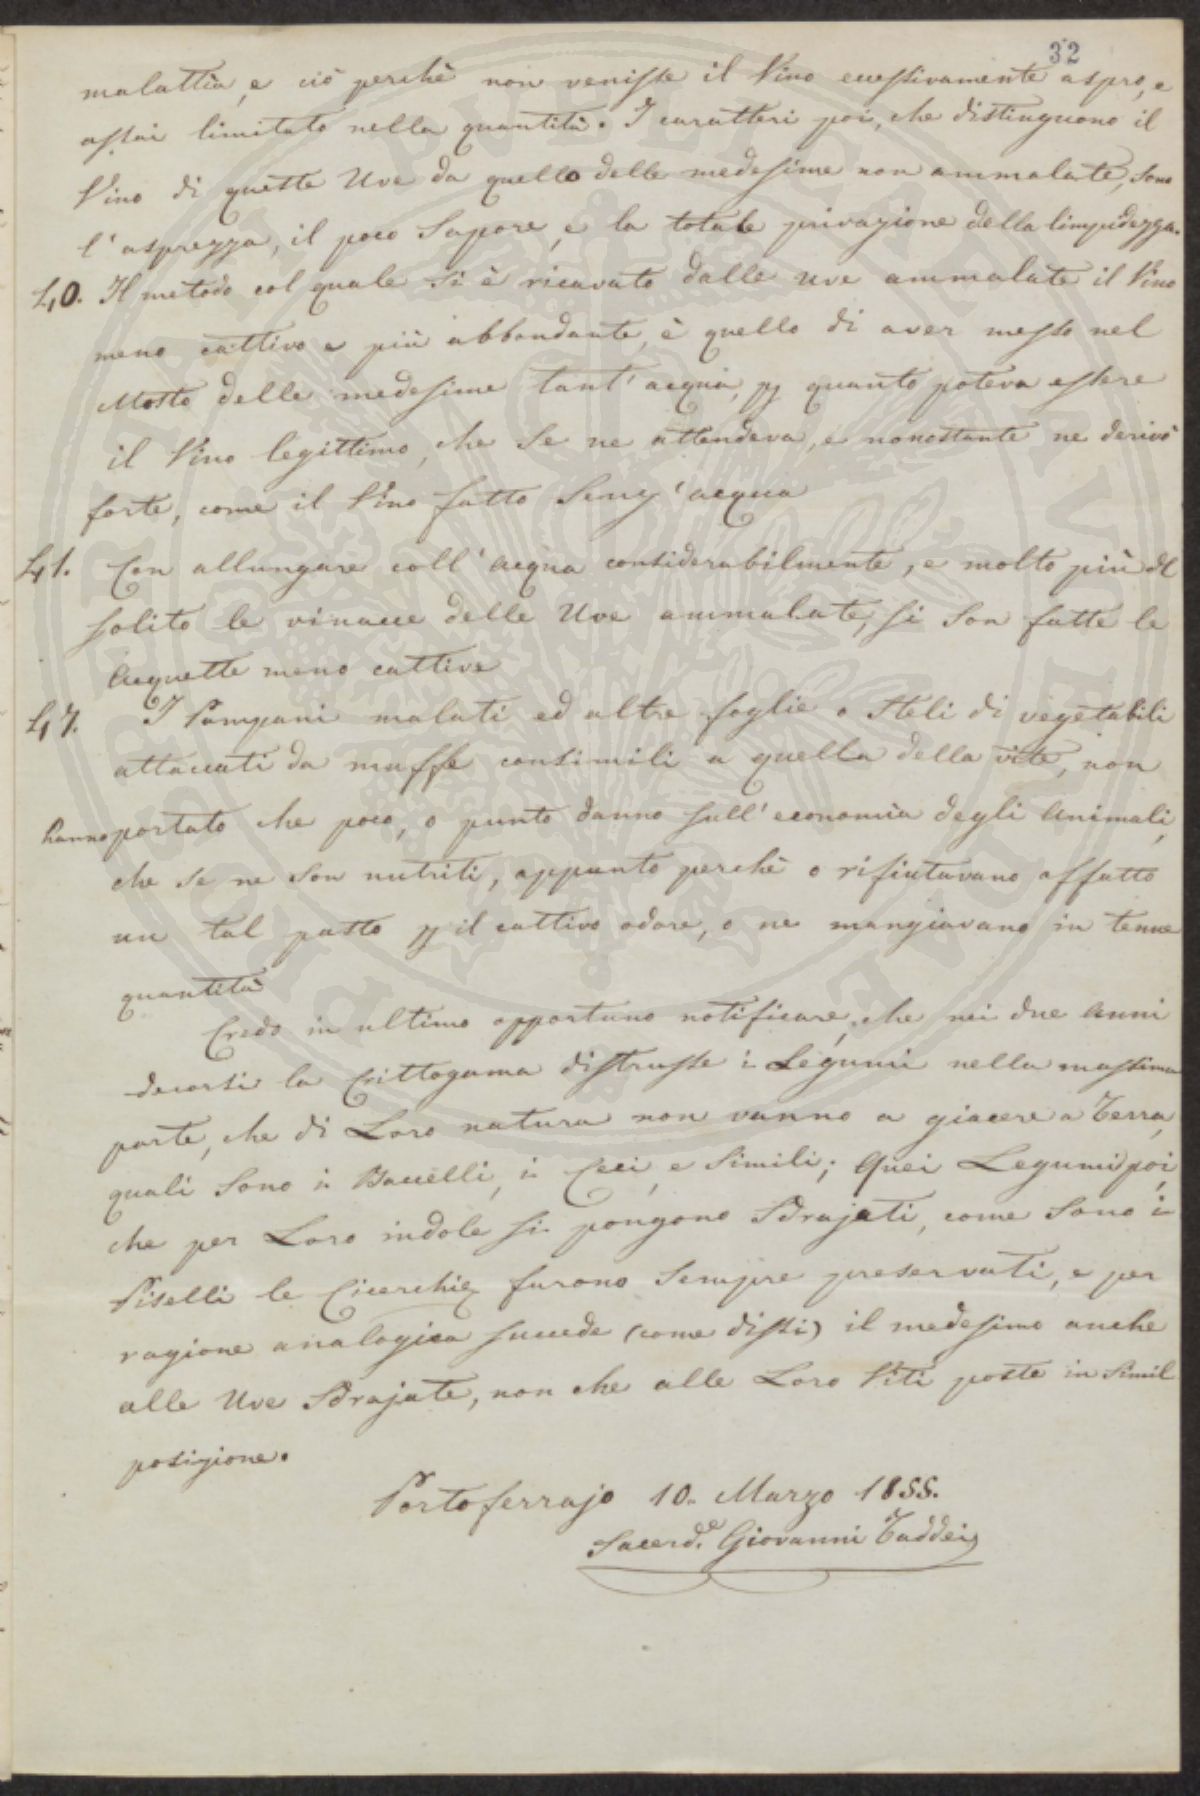 32
malattia, e ciò perchè non venisse il Vino eccessivamente aspro, e
assai limitato nella quantità. I caratteri poi, che distinguono il
Vino di queste Uve da quello delle medesime non ammalate, sono
l'asprezza, il poco Sapore, e la totale privazione della limpidezza.
40. Il metodo col quale si è ricavato dalle uve ammalate il Vino
meno cattivo e più abbondante, è quello di aver messo nel
Mosto delle medesime tant'acqua, p quanto poteva essere
il Vino legittimo, che Se ne attendeva, e nonostante ne derivò
forte, come il Vino fatto Senz'acqua
41. Con allungare coll'acqua considerabilmente, e molto più del
solito le vinacce delle Uve ammalate, si Son fatte le
Acquette meno cattive
47. I Pampani malati ed altre foglie o Steli di vegetabili
attaccati da muffe consimili a quella della vite, non
hanno portato che poco, o punto danno sull'economia degli Animali,
che se ne Son nutriti, appunto perchè o rifiutavano affatto
un tal pasto p il cattivo odore, o ne mangiavano in tenue
quantità
Credo in ultimo opportuno notificare, che nei due Anni
decorsi la Crittogama distrusse i Legumi nella massima
parte, che di Loro natura non vanno a giacere a Terra,
quali Sono i Baccelli, i Ceci, e Simili; Quei Legumi poi,
che per Loro indole si pongono Sdrajati, come Sono i
Piselli le Cicerchie furono Sempre preservati, e per
ragione analogica succede (come dissi) il medesimo anche
alle Uve Sdrajate, non che alle Loro Viti poste in Simil
posizione.
Portoferrajo 10. Marzo 1855.
Sacerd.e Giovanni Taddei